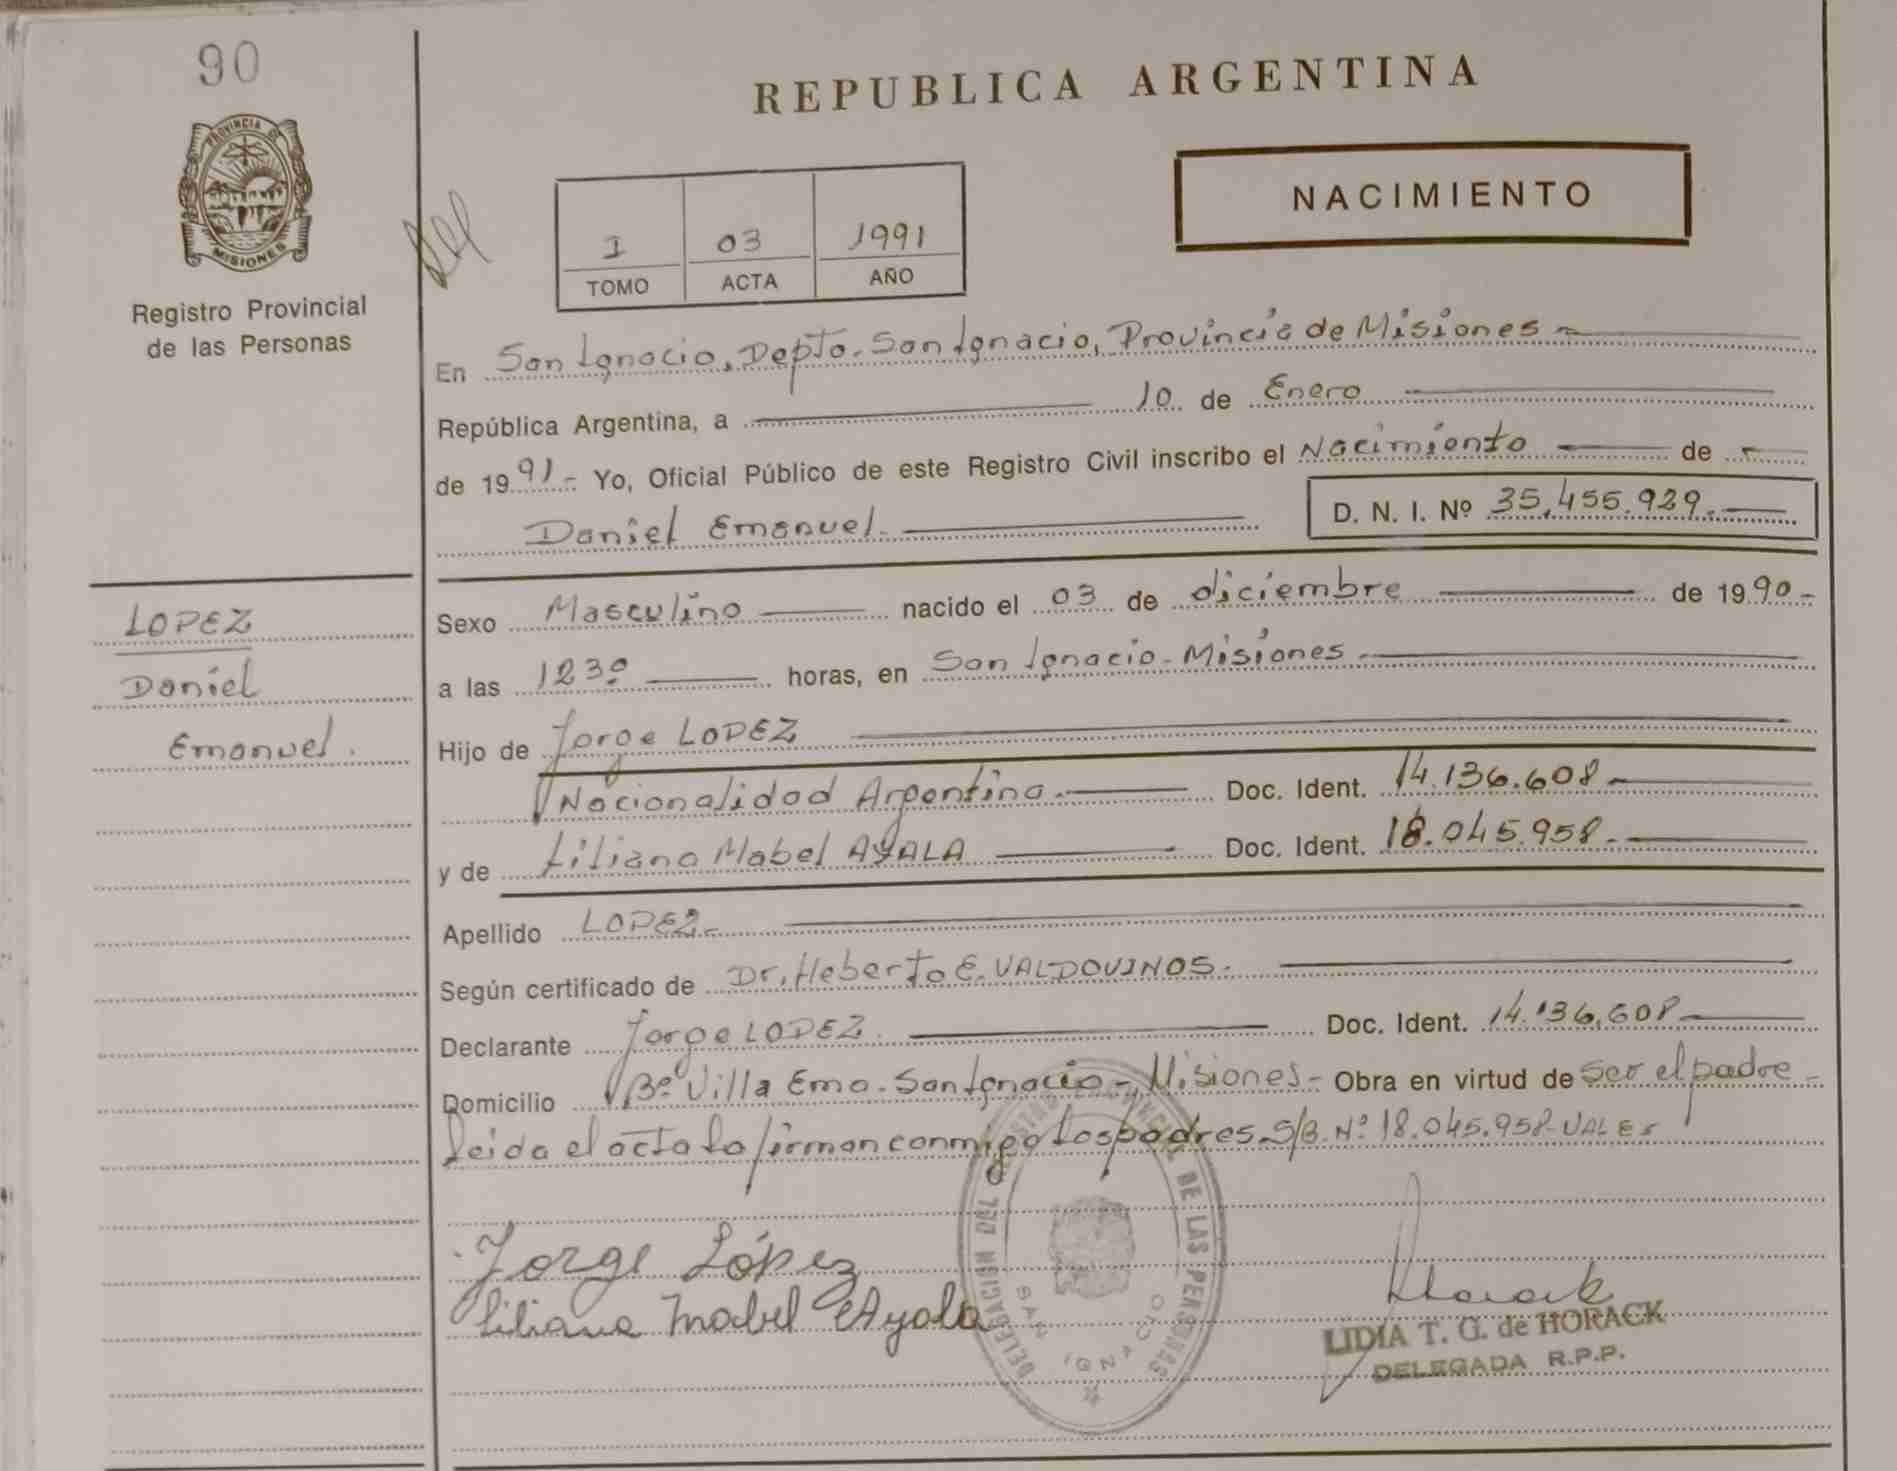 90
REPUBLICA ARGENTINA
PROVINCIA DE
MISIONES
Registro Provincial
de las Personas
I 03 1991
TOMO ACTA AÑO
NACIMIENTO
En San Ignacio, Depto. San Ignacio, Provincia de Misiones
República Argentina, a 10 de Enero
de 1991.- Yo, Oficial Público de este Registro Civil inscribo el Nacimiento de
Daniel Emanuel. D. N. I. Nº 35.455.929.
LOPEZ
Daniel
Emanuel.
Sexo Masculino nacido el 03 de diciembre de 1990-
a las 1230 horas, en San Ignacio - Misiones
Hijo de Jorge LOPEZ
Nacionalidad Argentina. Doc. Ident. 14.136.608
y de Liliana Mabel AYALA Doc. Ident. 18.045.958.
Apellido LOPEZ
Según certificado de Dr. Heberto E. VALDOVINOS.
Declarante Jorge LOPEZ. Doc. Ident. 14.136.608
Domicilio Bº Villa Ema. San Ignacio - Misiones - Obra en virtud de ser el padre -
Leida el acta la firman conmigo los padres. S/B. Nº 18.045.958 - VALE
Jorge López
Liliana Mabel Ayala
DELEGACION DEL REGISTRO PROVINCIAL DE LAS PERSONAS
SAN IGNACIO
Horack
LIDIA T. G. de HORACK
DELEGADA R.P.P.